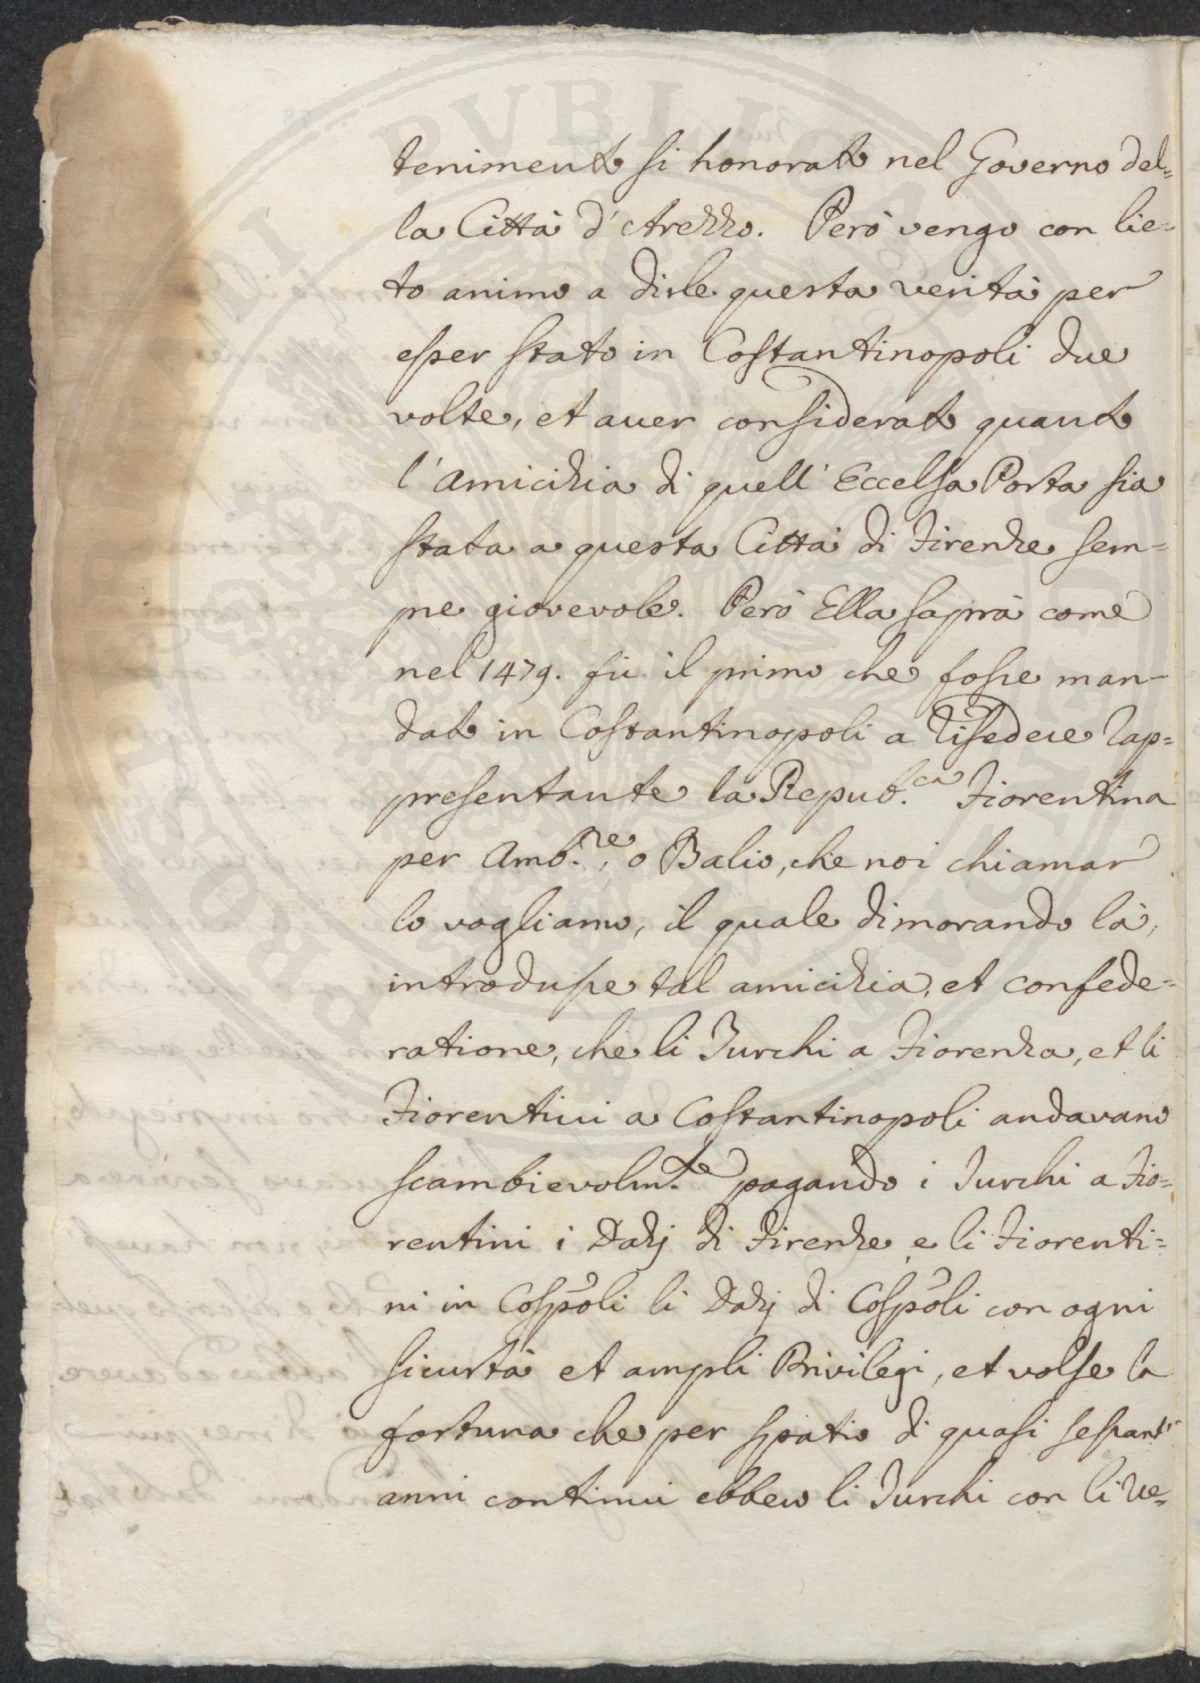 tenimento si honorato nel Governo del=
la Città d'Arezzo. Però vengo con lie=
to animo a dirle questa verità per
esser stato in Costantinopoli due
volte, et auer considerato quanto
l'Amicizia di quell'Eccelsa Porta sia
stata a questa Città di Firenze sem=
pre giovevole. Però Ella saprà come
nel 1479. fù il primo che fosse man-
dato in Costantinopoli a risedere rap=
presentante la Repub.ca Fiorentina
per Amb.re, o Balio, che noi chiamar
lo vogliamo, il quale dimorando là,
introdusse tal amicizia, et confede=
ratione, che li Turchi a Fiorenza, et li
Fiorentini a Costantinopoli andavano
scambievolm.te pagando i Turchi a Fio=
rentini i Dazj di Firenze e li Fiorenti=
ni in Cospoli li Dazj di Cospoli con ogni
sicurtà et ampli Privilegi, et volse la
fortuna che per spatio di quasi sessant'
anni continui ebbero li Turchi con li Ve=